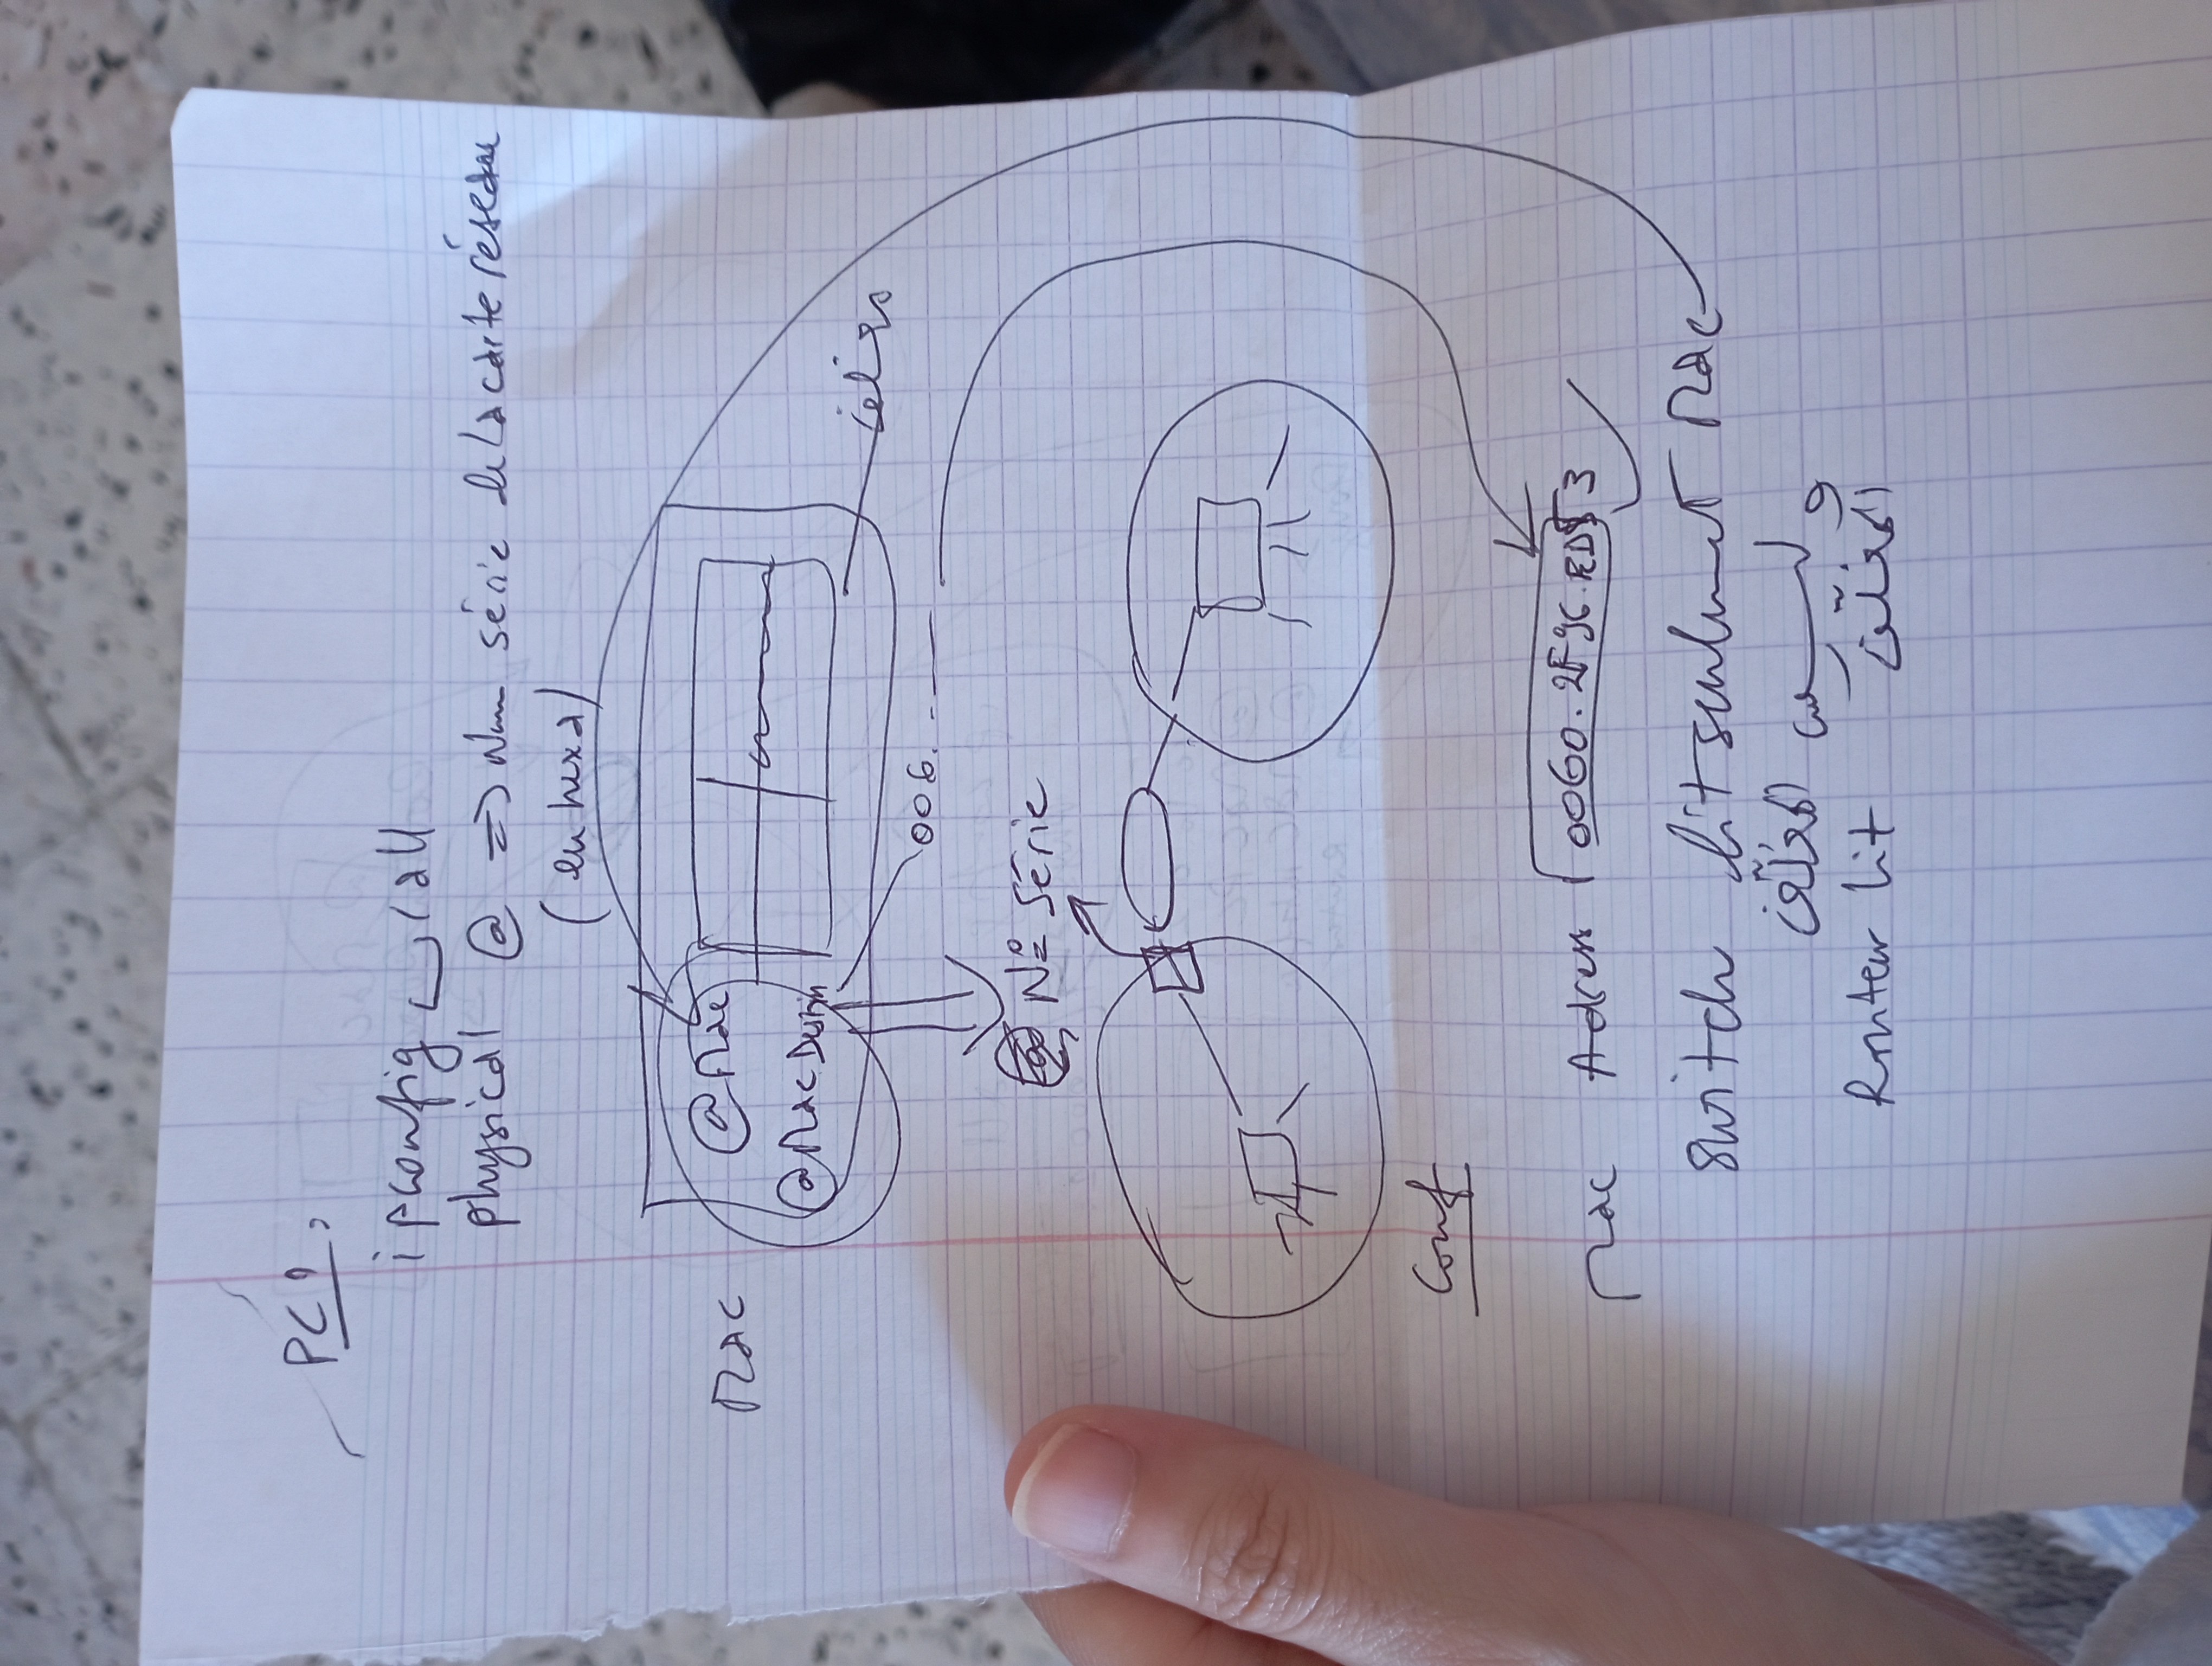 PC1,
ipconfig ⌴ /all
physical @ => Num série de la carte réseau
(en hexa)
Mac
@Mac
@Mac Destin
مغلف
006. - —
N° série
Conf
Mac Adress 0060.2F96.
switch lit seulement Mac
وليس المغلّف
Routeur lit المغلّف